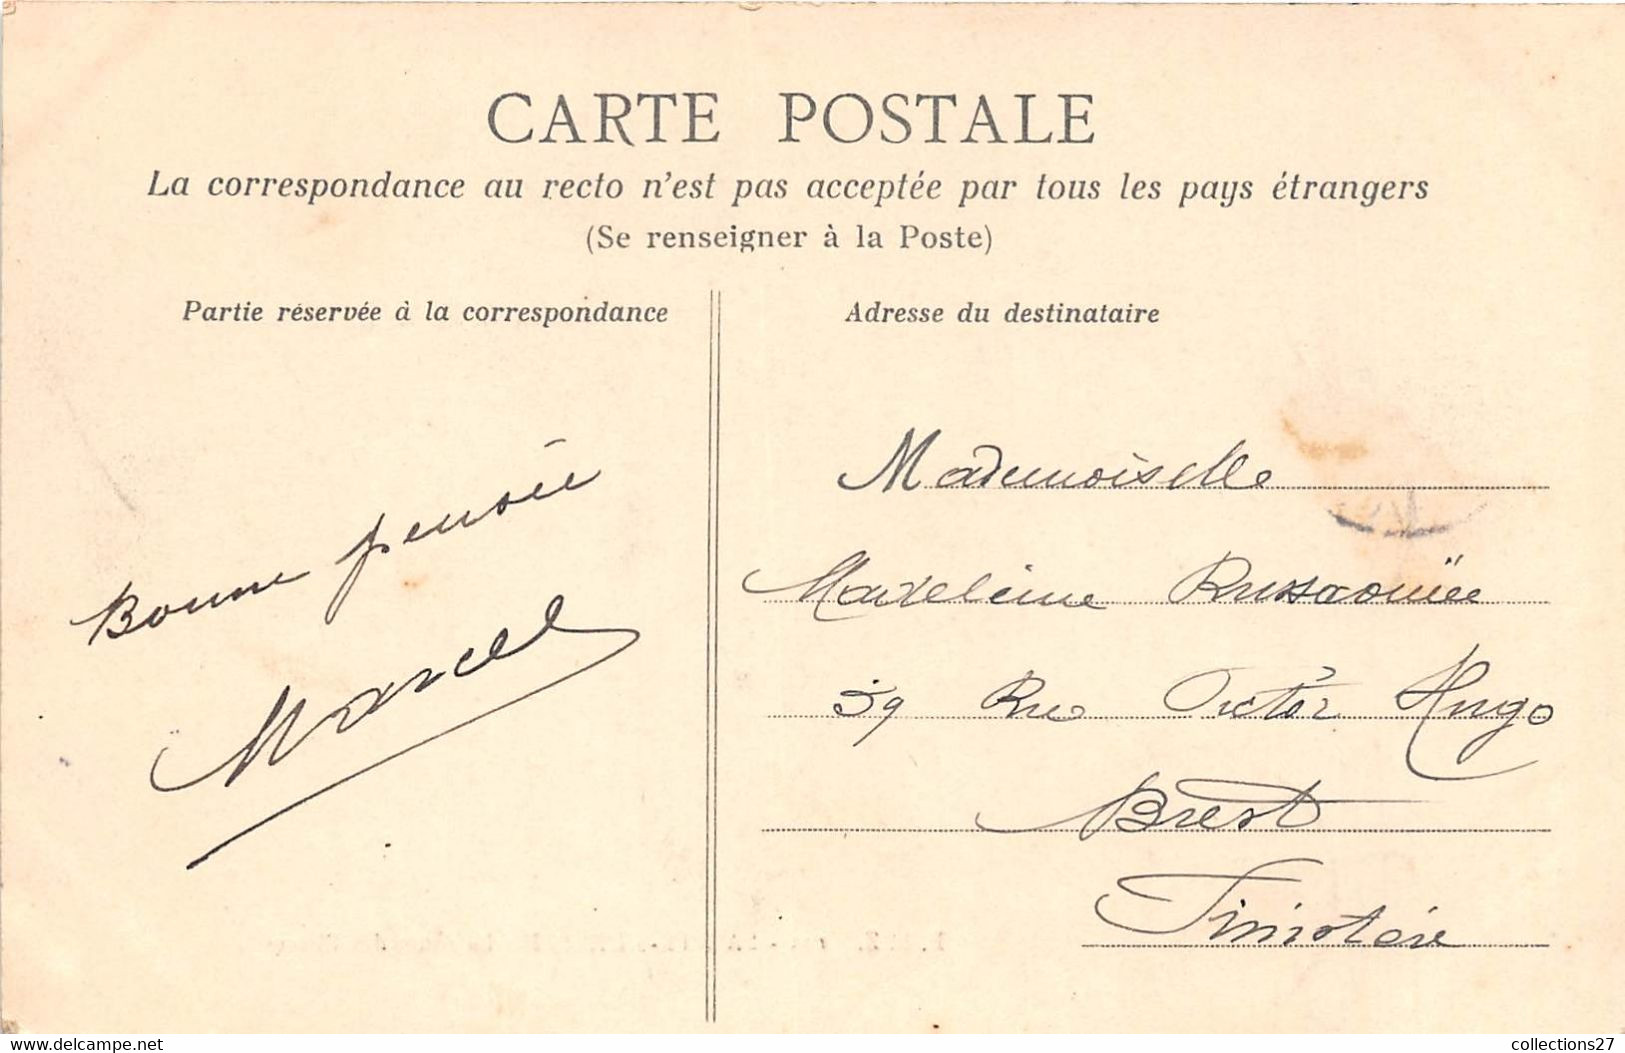 CARTE POSTALE
La correspondance au recto n'est pas acceptée par tous les pays étrangers
(Se renseigner à la Poste)
Partie réservée à la correspondance
Adresse du destinataire
Bonne pensée
Marcel
Mademoiselle
Madeleine
59 Rue Victor Hugo
Brest
Finistère
www.delcampe.net
collections27